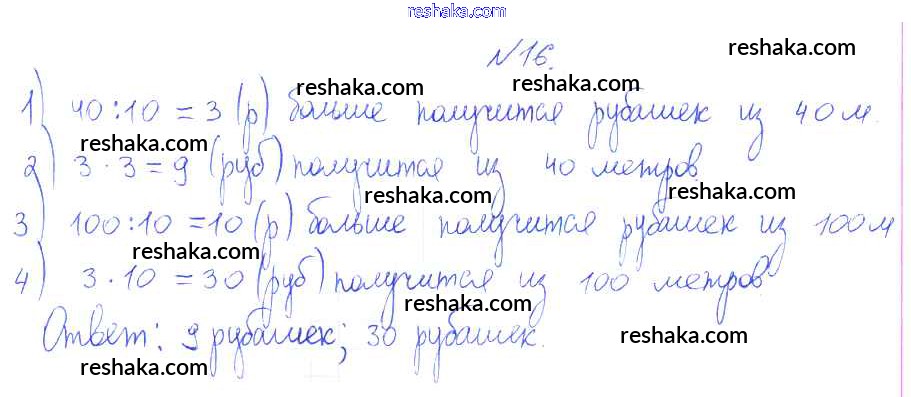 reshaka.com
№16.
reshaka.com
reshaka.com
reshaka.com
1) 40:10=3 (р) больше получится рубашек из 40 м.
reshaka.com
2) 3·3=9 (руб) получится из 40 метров.
reshaka.com
reshaka.com
3) 100:10=10 (р) больше получится рубашек из 100 м
reshaka.com
4) 3·10=30 (руб) получится из 100 метров
reshaka.com
Ответ: 9 рубашек; 30 рубашек.
reshaka.com
reshaka.com